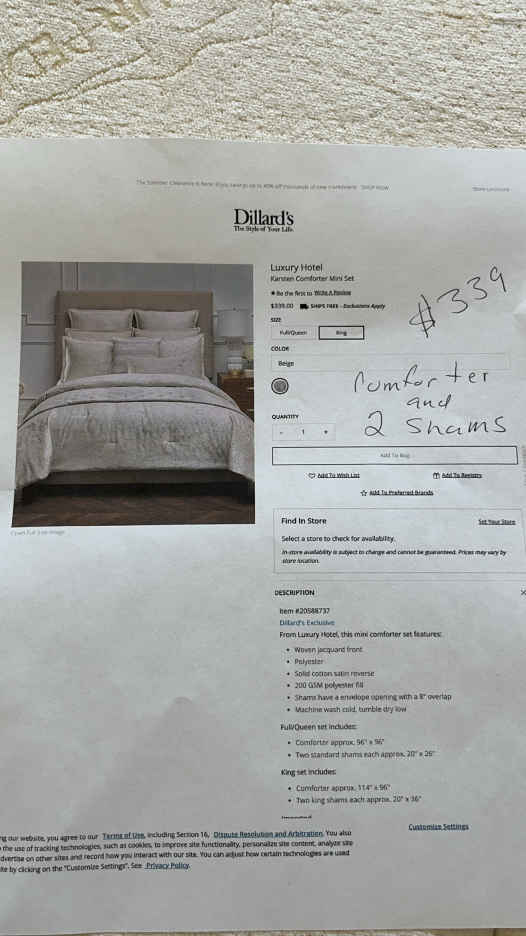 The Summer Clearance is here! Enjoy savings up to 40% off thousands of new markdowns! SHOP NOW
Dillard's
The Style of Your Life.
Luxury Hotel
Karsten Comforter Mini Set
★ Be the first to Write A Review
$339.00 SHIPS FREE - Exclusions Apply
SIZE
Full/Queen King
COLOR
Beige
QUANTITY
- 1 +
Add To Bag
Add To Wish List Add To Registry
Add To Preferred Brands
$339
Comforter
and
2 shams
Find In Store Set Your Store
Select a store to check for availability.
In-store availability is subject to change and cannot be guaranteed. Prices may vary by
store location.
Open Full Size Image
DESCRIPTION
Item #20588737
Dillard's Exclusive
From Luxury Hotel, this mini comforter set features:
• Woven jacquard front
• Polyester
• Solid cotton satin reverse
• 200 GSM polyester fill
• Shams have a envelope opening with a 8" overlap
• Machine wash cold, tumble dry low
Full/Queen set includes:
• Comforter approx. 96" x 96"
• Two standard shams each approx. 20" x 26"
King set includes:
• Comforter approx. 114" x 96"
• Two king shams each approx. 20" x 36"
Imported
ng our website, you agree to our Terms of Use, including Section 16, Dispute Resolution and Arbitration. You also
the use of tracking technologies, such as cookies, to improve site functionality, personalize site content, analyze site
dvertise on other sites and record how you interact with our site. You can adjust how certain technologies are used
ite by clicking on the "Customize Settings". See Privacy Policy.
Customize Settings